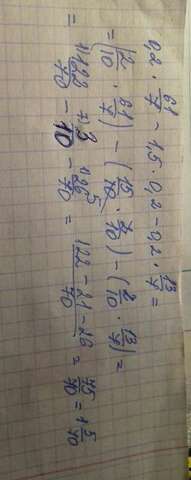 0,2 · 61/7 - 1,5 · 0,2 - 0,2 · 13/7 =
= (2/10 · 61/7) - (15/10 · 2/10) - (2/10 · 13/7) =
= 122/70 - 3/10 - 26/70 = 122 - 21 - 26/70 = 75/70 = 1 5/70